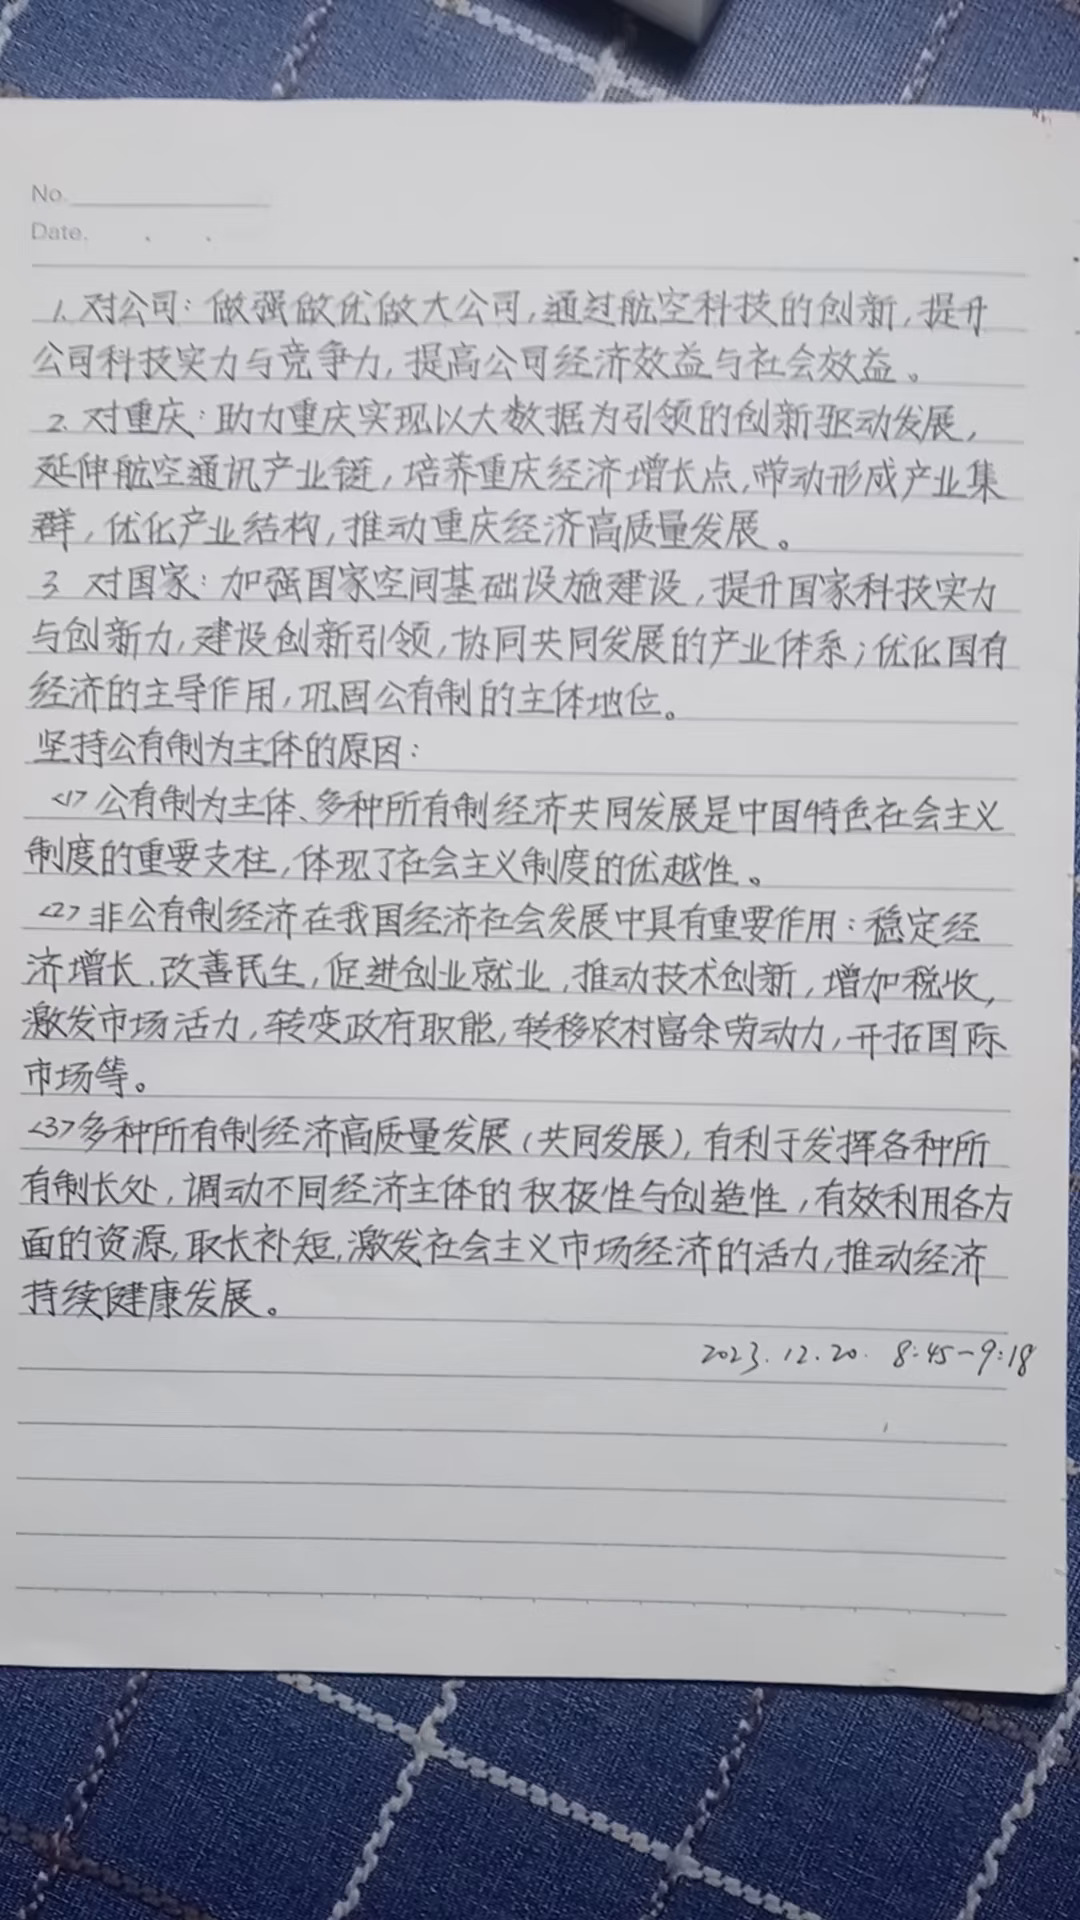 No.
Date.
1. 对公司：做强做优做大公司，通过航空科技的创新，提升
公司科技实力与竞争力，提高公司经济效益与社会效益。
2. 对重庆：助力重庆实现以大数据为引领的创新驱动发展，
延伸航空通讯产业链，培养重庆经济增长点，带动形成产业集
群，优化产业结构，推动重庆经济高质量发展。
3 对国家：加强国家空间基础设施建设，提升国家科技实力
与创新力，建设创新引领，协同共同发展的产业体系；优化国有
经济的主导作用，巩固公有制的主体地位。
坚持公有制为主体的原因：
<1> 公有制为主体、多种所有制经济共同发展是中国特色社会主义
制度的重要支柱，体现了社会主义制度的优越性。
<2> 非公有制经济在我国经济社会发展中具有重要作用：稳定经
济增长，改善民生，促进创业就业，推动技术创新，增加税收，
激发市场活力，转变政府职能，转移农村富余劳动力，开拓国际
市场等。
<3> 多种所有制经济高质量发展（共同发展），有利于发挥各种所
有制长处，调动不同经济主体的积极性与创造性，有效利用各方
面的资源，取长补短，激发社会主义市场经济的活力，推动经济
持续健康发展。
2023.12.20. 8:45-9:18